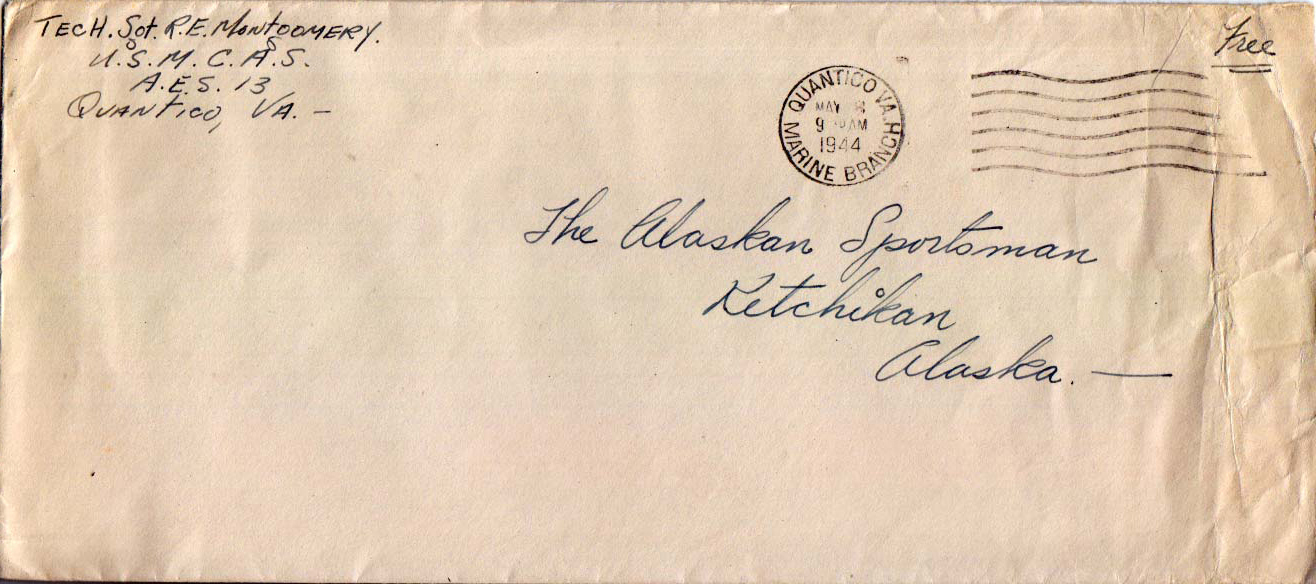 TECH. Sgt. R.E. MONTGOMERY.
U.S.M.C.A.S.
A.E.S. 13
QUANTICO, VA. —
Free
QUANTICO VA.
MAY 8
9 AM
1944
MARINE BRANCH
The Alaskan Sportsman
Ketchikan
Alaska. —